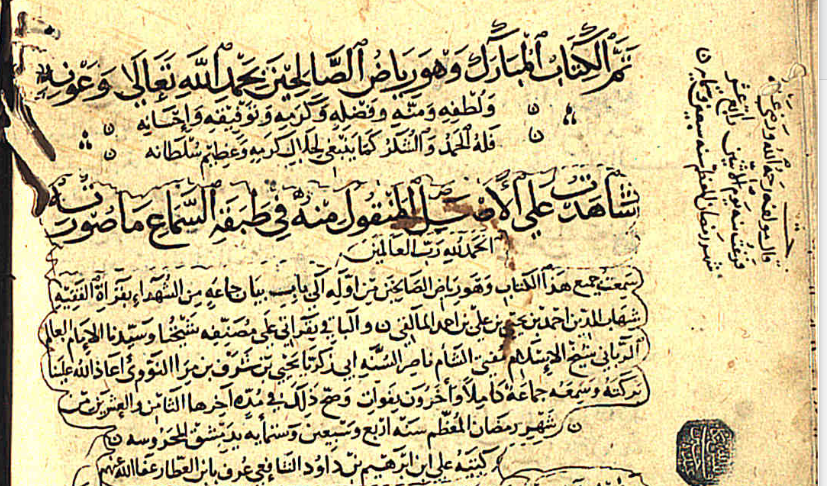 تم الكتاب المبارك وهو رياض الصالحين بحمد الله تعالى وعونه
ولطفه ومنه وفضله وكرمه وتوفيقه وإحسانه
فله الحمد والشكر كما ينبغي لجلال كرمه وعظيم سلطانه
شاهدت على الأصل المنقول منه في طبقة السماع ما صورته
الحمد لله رب العالمين
سمعت جميع هذا الكتاب وهو رياض الصالحين من اوله الى باب بيان جماعة من الشهداء بقراة الفقيه
شهاب الدين احمد بن يحيى بن علي بن احمد المالقي والباقي بقراتي على مصنفه شيخنا وسيدنا الإمام العالم
الرباني شيخ الإسلام مفتي الشام ناصر السنة ابي زكريا يحيى بن شرف بن مرا النووي اعاد الله علينا
بركته وسمعه جماعة كاملا وآخرون بفوات وصح ذلك في مدة آخرها الثامن والعشرين من
شهر رمضان المعظم سنة اربع وسبعين وستمايه بدمشق المحروسه
كتبه علي بن ابرهيم بن داود الشافعي عرف بابن العطار عفا الله عنهم
قال مولفه رحمه الله ورضي عنه
فرغت منه يوم الاثنين رابع عشر
شهر رمضان المعظم سنة سبعين وستمايه